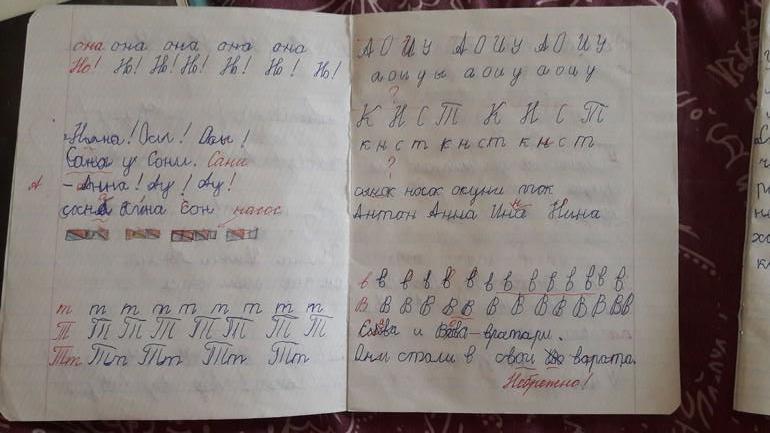 она она она она она
Но! Но! Но! Но! Но! Но! Но!
- Нина!
Сана у Сони. Сани
А
- Анна! Ау! Ау!
сосна Сон насос
т т т т т т т т т
Т Т Т Т Т Т Т Т
Тт Тт Тт Тт Тт
А О И У А О И У А О И У
а о и у ы а о и у а о и у
?
К Н С Т К Н С Т
к н с т к н с т к н с т
?
насос окуни
Антон Анна Инна Нина
в в в в в в в в в в в в в в
В В В В В В В В В В В В Вв
и Вова - вратари.
Они стали в свои варата.
Небрежно!